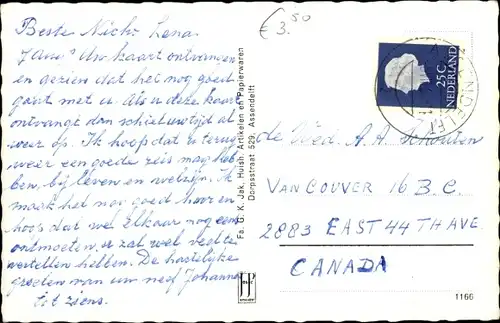 Beste Nicht Lena.
Uw kaart ontvangen
en gezien dat het nog goed
gaat met u. Als u deze kaart
ontvangt dan schiet uw tijd al
weer op. Ik hoop dat u terug
weer een goede reis mag heb
ben, bij leven en welzijn. Ik
maak het nog goed hoor en
hoop dat we elkaar nog eens
ontmoeten, u zal wel veel te
vertellen hebben. De hartelijke
groeten van uw neef Johannes
tot ziens.
€ 3.50
Fa. G. K. Jak, Huish. Artikelen en Papierwaren
Dorpsstraat 529, Assendelft
25C
NEDERLAND
de Wed. A. A. Schouten
VANCOUVER 16 B.C.
2883 EAST 44TH AVE.
CANADA
1166